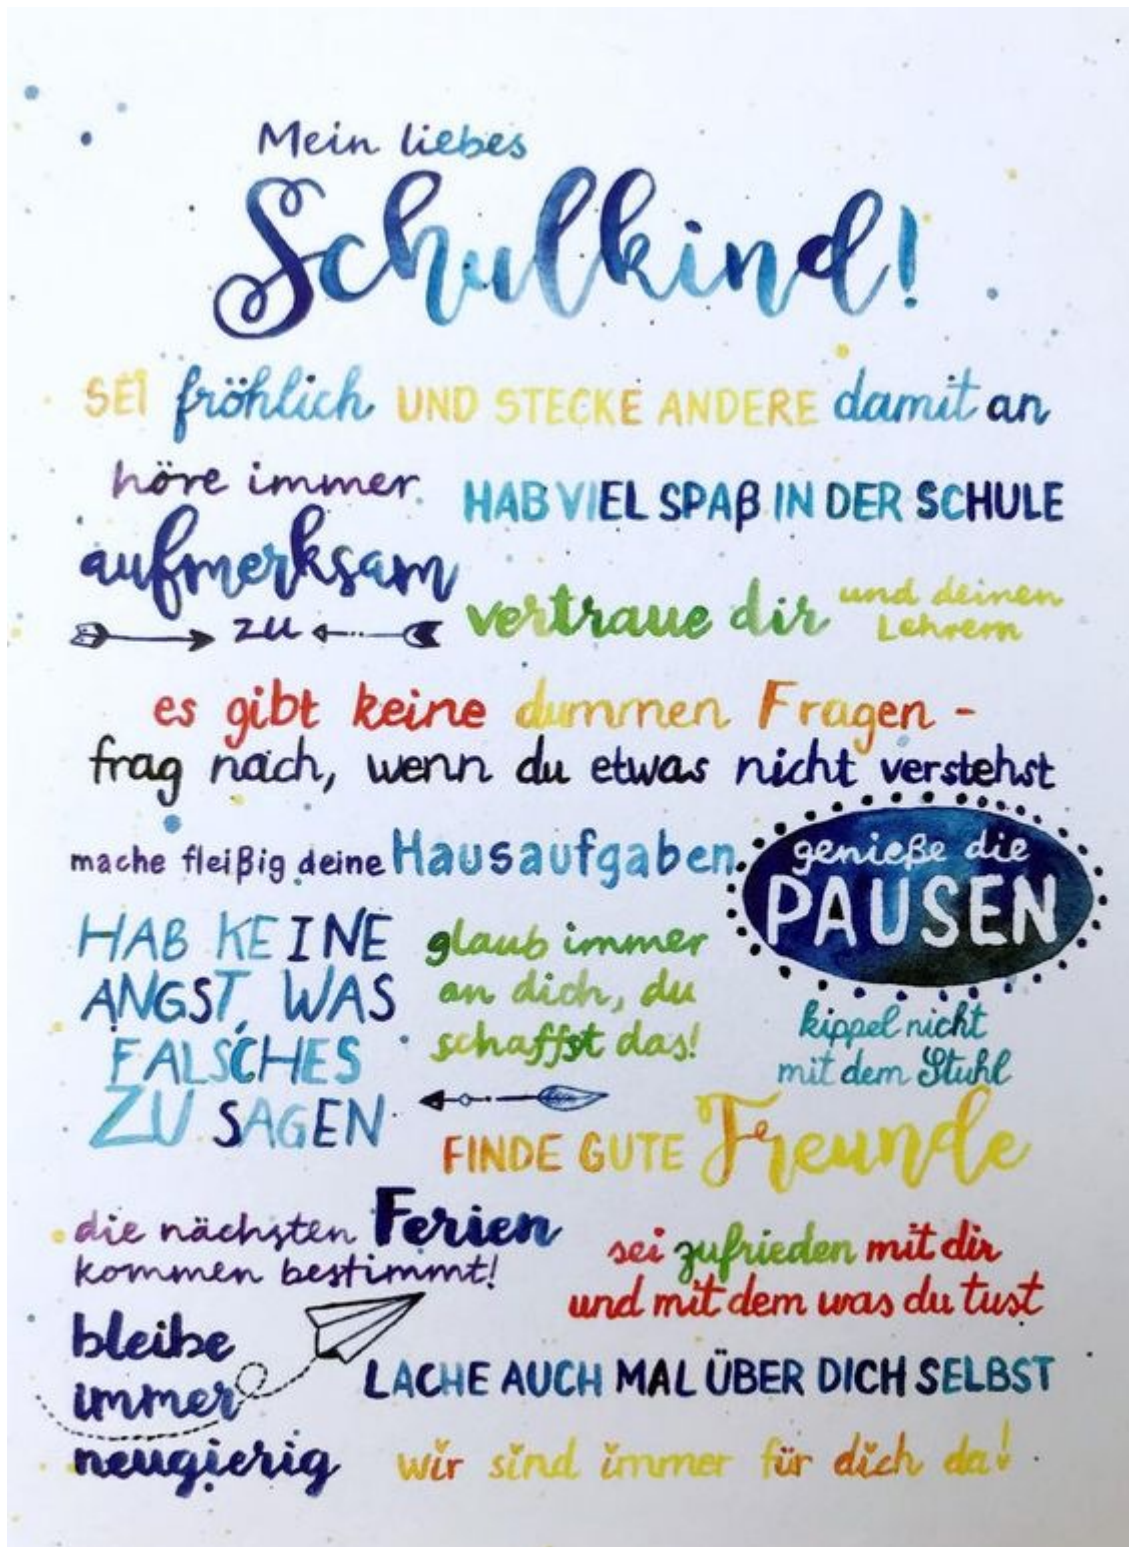 Mein liebes
Schulkind!
SEI fröhlich UND STECKE ANDERE damit an
höre immer
aufmerksam
zu
HAB VIEL SPAß IN DER SCHULE
vertraue dir und deinen
Lehrern
es gibt keine dummen Fragen -
frag nach, wenn du etwas nicht verstehst
mache fleißig deine Hausaufgaben
genieße die
PAUSEN
HAB KEINE
ANGST, WAS
FALSCHES
ZU SAGEN
glaub immer
an dich, du
schaffst das!
kippel nicht
mit dem Stuhl
FINDE GUTE Freunde
die nächsten Ferien
kommen bestimmt!
sei zufrieden mit dir
und mit dem was du tust
bleibe
immer
neugierig
LACHE AUCH MAL ÜBER DICH SELBST
wir sind immer für dich da!